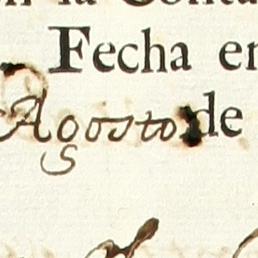 on la Conta
Fecha en
Agosto de